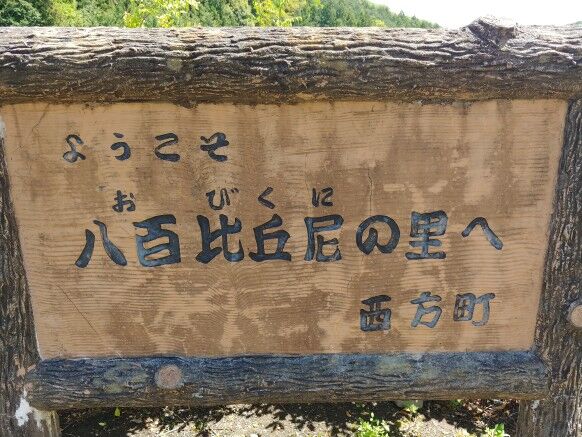 ようこそ
お びくに
八百比丘尼の里へ
西方町